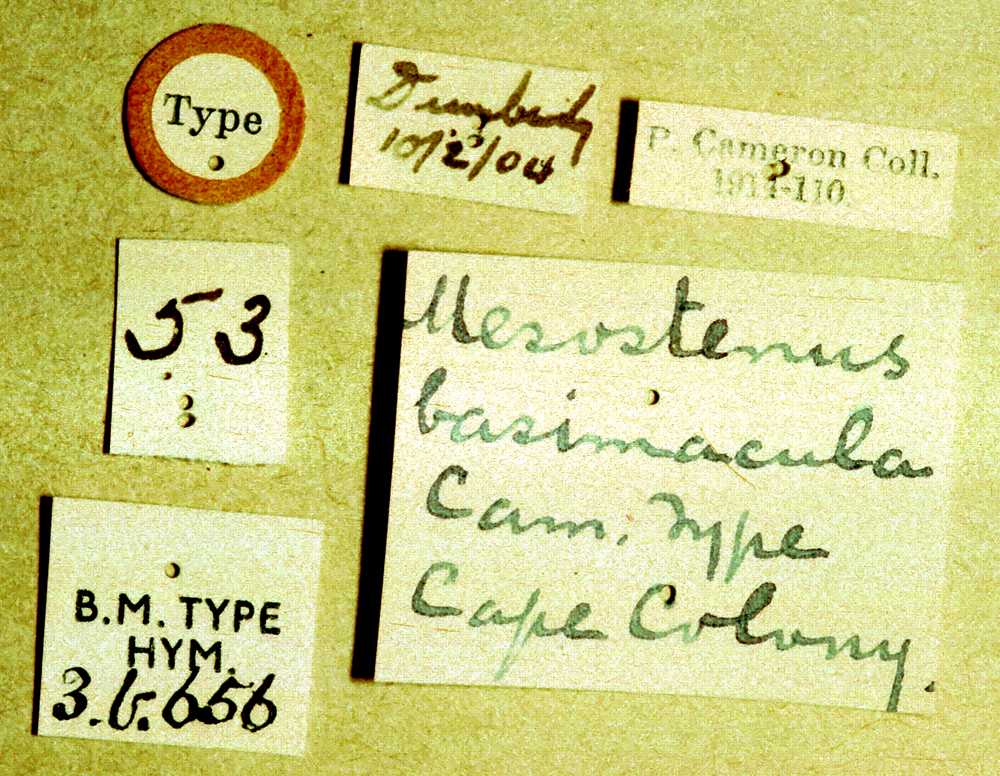 Type
Dunbrody
10/2/04
P. Cameron Coll.
1914-110
53
Mesostenus
basimacula
Cam. Type
Cape Colony.
B.M. TYPE
HYM.
3.b.656